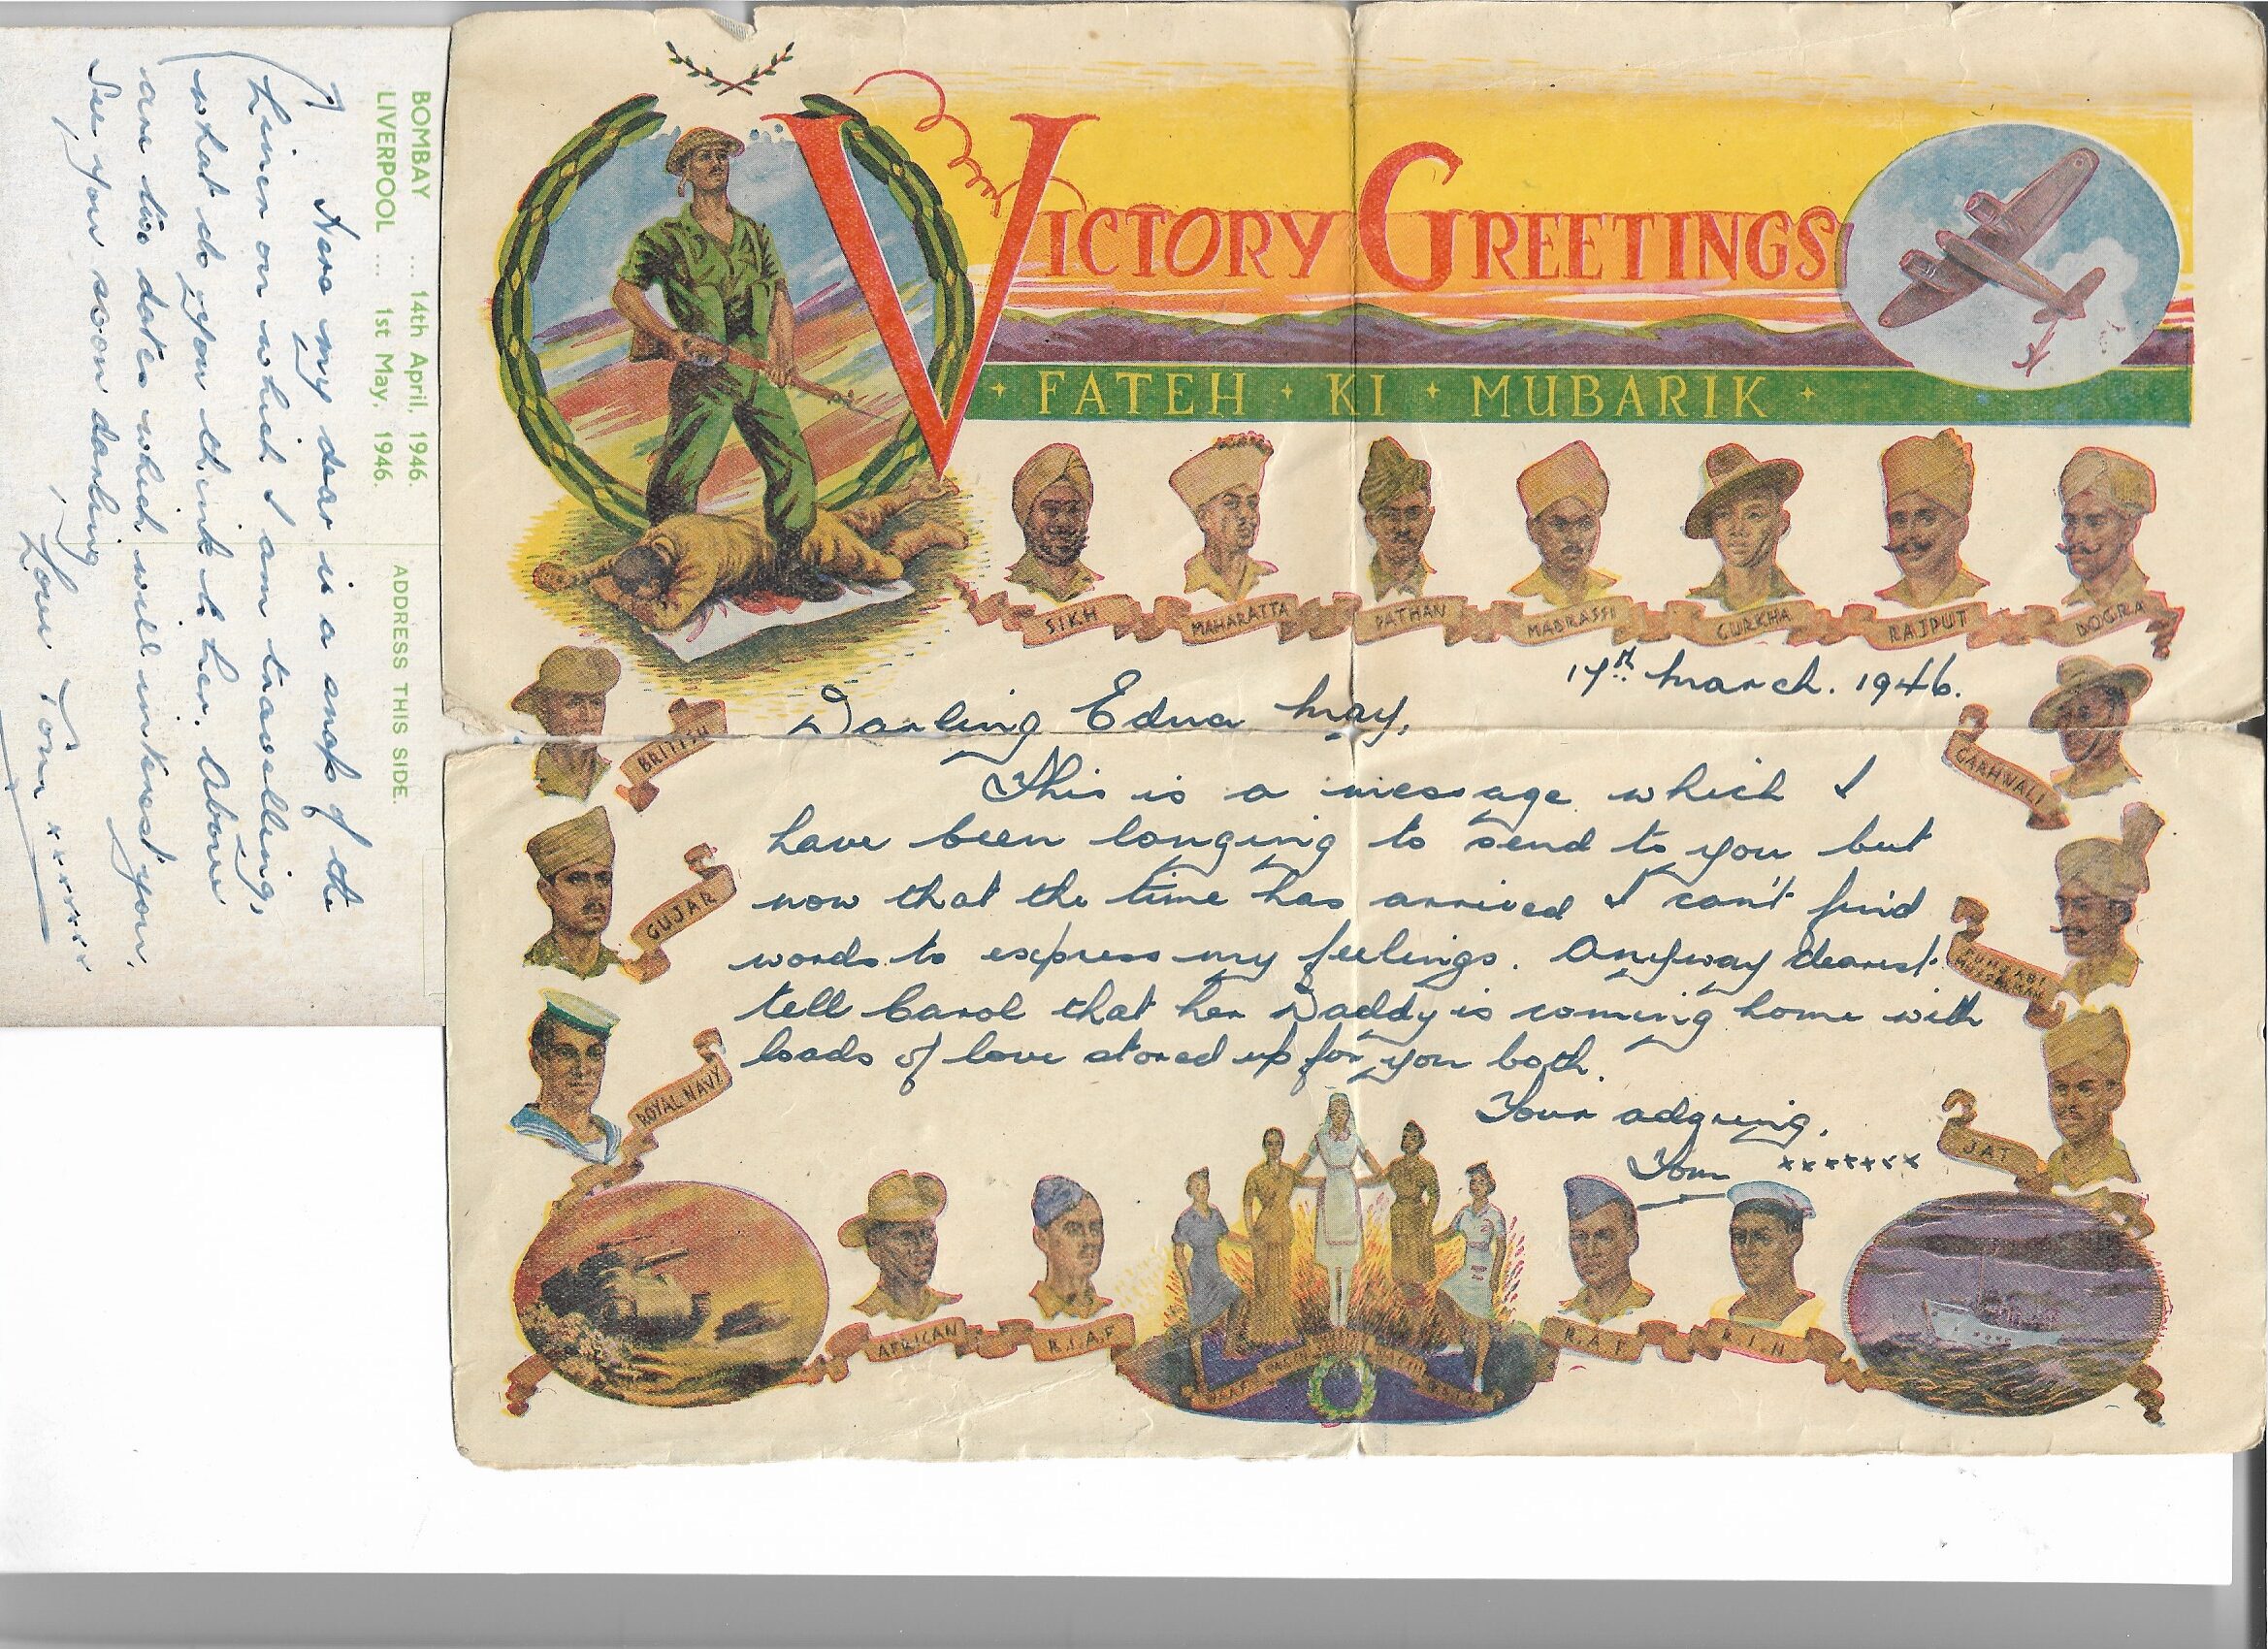 VICTORY GREETINGS
FATEH · KI · MUBARIK
SIKH
MAHARATTA
PATHAN
MADRASSI
GURKHA
RAJPUT
DOGRA
BRITISH
GUJAR
ROYAL NAVY
GARHWALI
MUSSALMAN
JAT
17th March. 1946.
Darling Edna May,
This is a message which I
have been longing to send to you but
now that the time has arrived I can't find
words to express my feelings. Anyway dearest
tell Carol that her Daddy is coming home with
loads of love stored up for you both.
Your adoring,
Tom xxxxxxx
AFRICAN
R.I.A.F
R.A.F
R.I.N
BOMBAY .... 14th April, 1946.
LIVERPOOL .... 1st May, 1946.
ADDRESS THIS SIDE.
Here my dear is a snap of the
Liner on which I am travelling,
what do you think to her. Above
are two dates which will interest you.
See you soon darling
Love Tom xxxxxxx